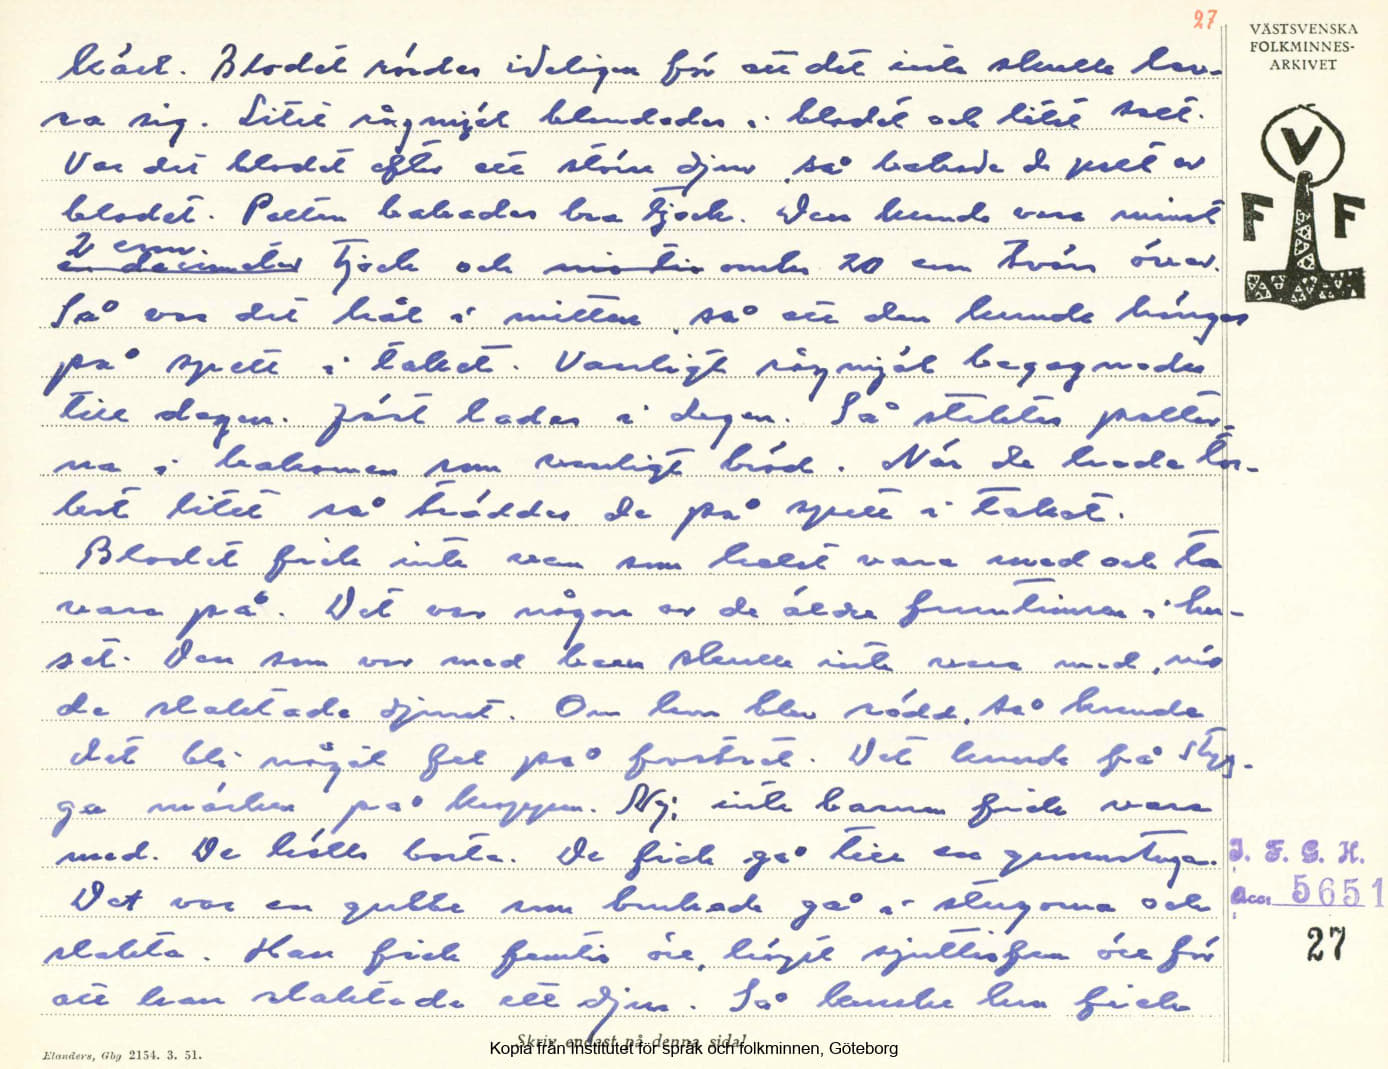 27
VÄSTSVENSKA
FOLKMINNES-
ARKIVET
V
F F
kärl. Blodet rördes ideligen för att det inte skulle lev-
ra sig. Litet rågmjöl blandades i blodet och litet salt.
Var det blodet efter ett större djur, så bakade de palt av
blodet. Palten bakades bra tjock. Den kunde vara minst
2 cm.
en decimeter tjock och omkr 20 cm tvärs över.
Så var det hål i mitten, så att den kunde hänges
på spett i taket. Vanligt rågmjöl begagnades
till degen. Jäst lades i degen. Så stektes palter-
na i bakomen som vanligt bröd. När de hade tor-
kat litet så träddes de på spett i taket.
Blodet fick inte vem som helst vara med och ta
vara på. Det var någon av de äldre fruntimren i hu-
set. Den som var med barn skulle inte vara med, när
de slaktade djuret. Om hon blev rädd, så kunde
det bli något fel på fostret. Det kunde få styg-
ga märken på kroppen. Nej, inte barnen fick vara
med. De hölls borta. De fick gå till en grannstuga.
Det var en gubbe som brukade gå i stugorna och
slakta. Han fick femtio öre, högst sjuttifem öre för
att han slaktade ett djur. Så kanske han fick
I. F. G. H.
Acc. 5651
27
Skriv endast på denna sida!
Elanders, Gbg 2154. 3. 51.
Kopia från Institutet för språk och folkminnen, Göteborg